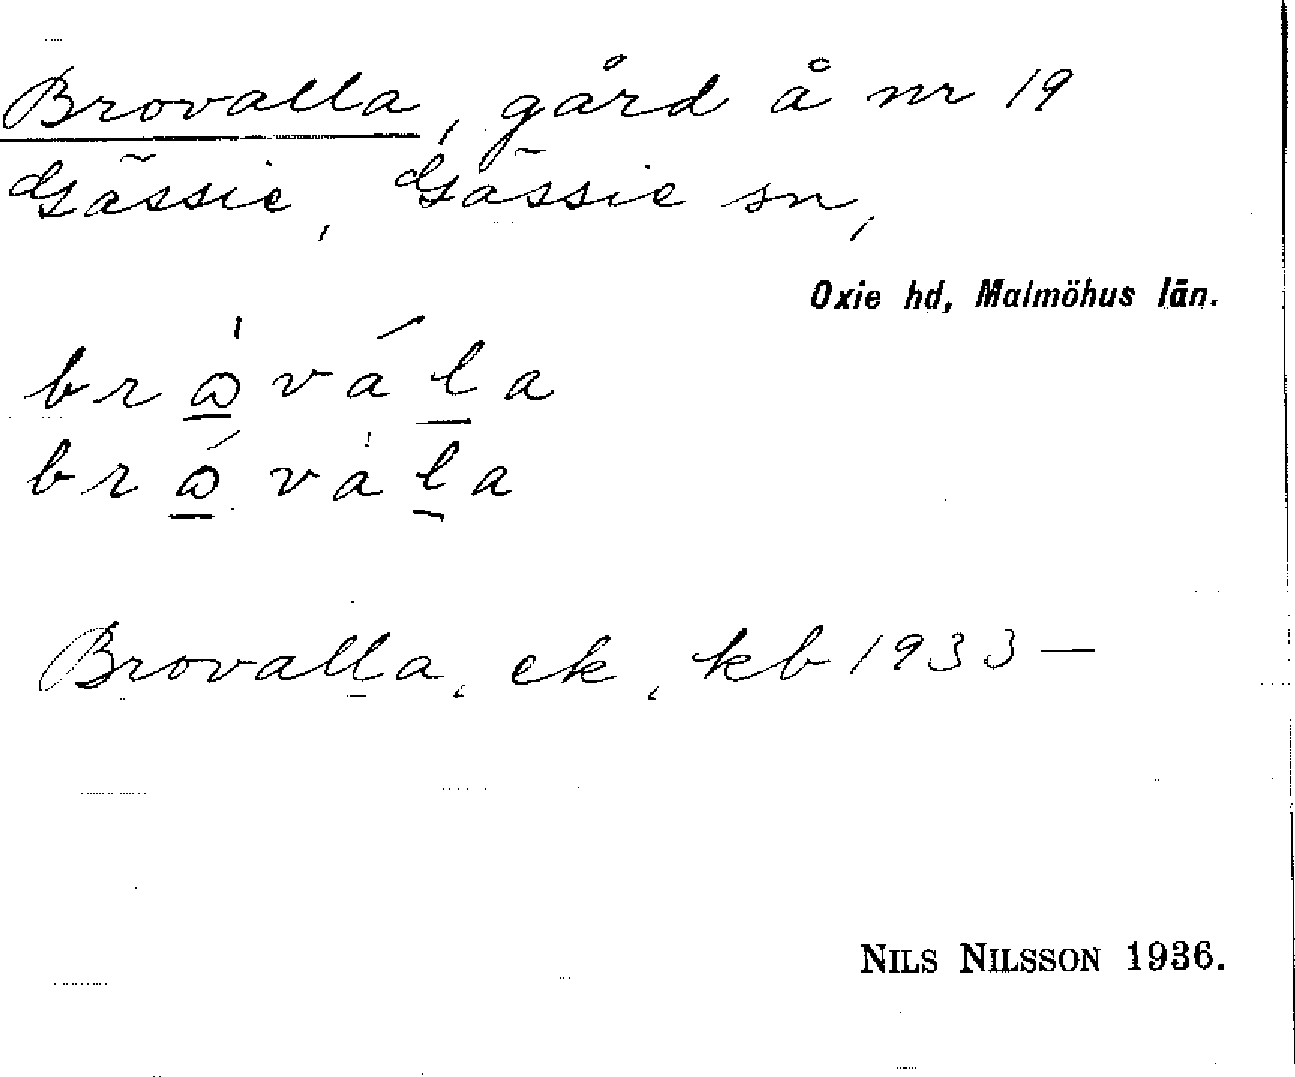 Brovalla, gård å nr 19
Gässie, Gässie sn,
Oxie hd, Malmöhus län.
Brovalla, ek, kb 1933—
NILS NILSSON 1936.